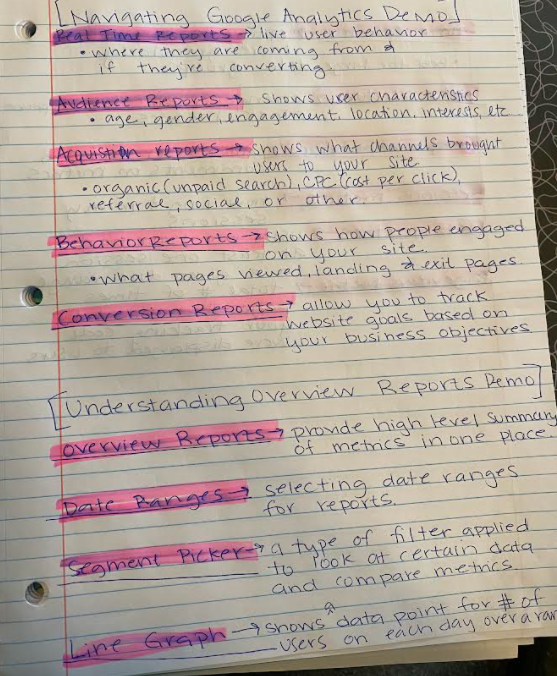 [Navigating Google Analytics Demo]
Real Time Reports → live user behavior
• where they are coming from &
if they're converting
Audience Reports → shows user characteristics
• age, gender, engagement, location, interests, etc
Acquistion reports → shows what channels brought
users to your site
• organic (unpaid search), CPC (cost per click),
referral, social, or other.
Behavior Reports → shows how people engaged
on your site.
• what pages viewed, landing & exit pages
Conversion Reports → allow you to track
website goals based on
your business objectives
[Understanding Overview Reports Demo]
Overview Reports → provide high level summary
of metrics in one place
Date Ranges → selecting date ranges
for reports.
Segment Picker → a type of filter applied
to look at certain data
and compare metrics
Line Graph → shows ^ data point for # of
users on each day over a ran